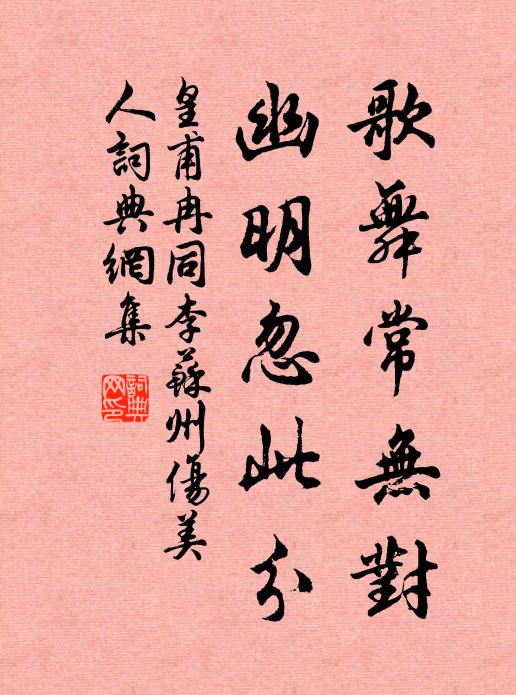 歌舞常無對
幽明忽此分
皇甫冉同李蘇州傷美
人詞典網集
詞典
网印